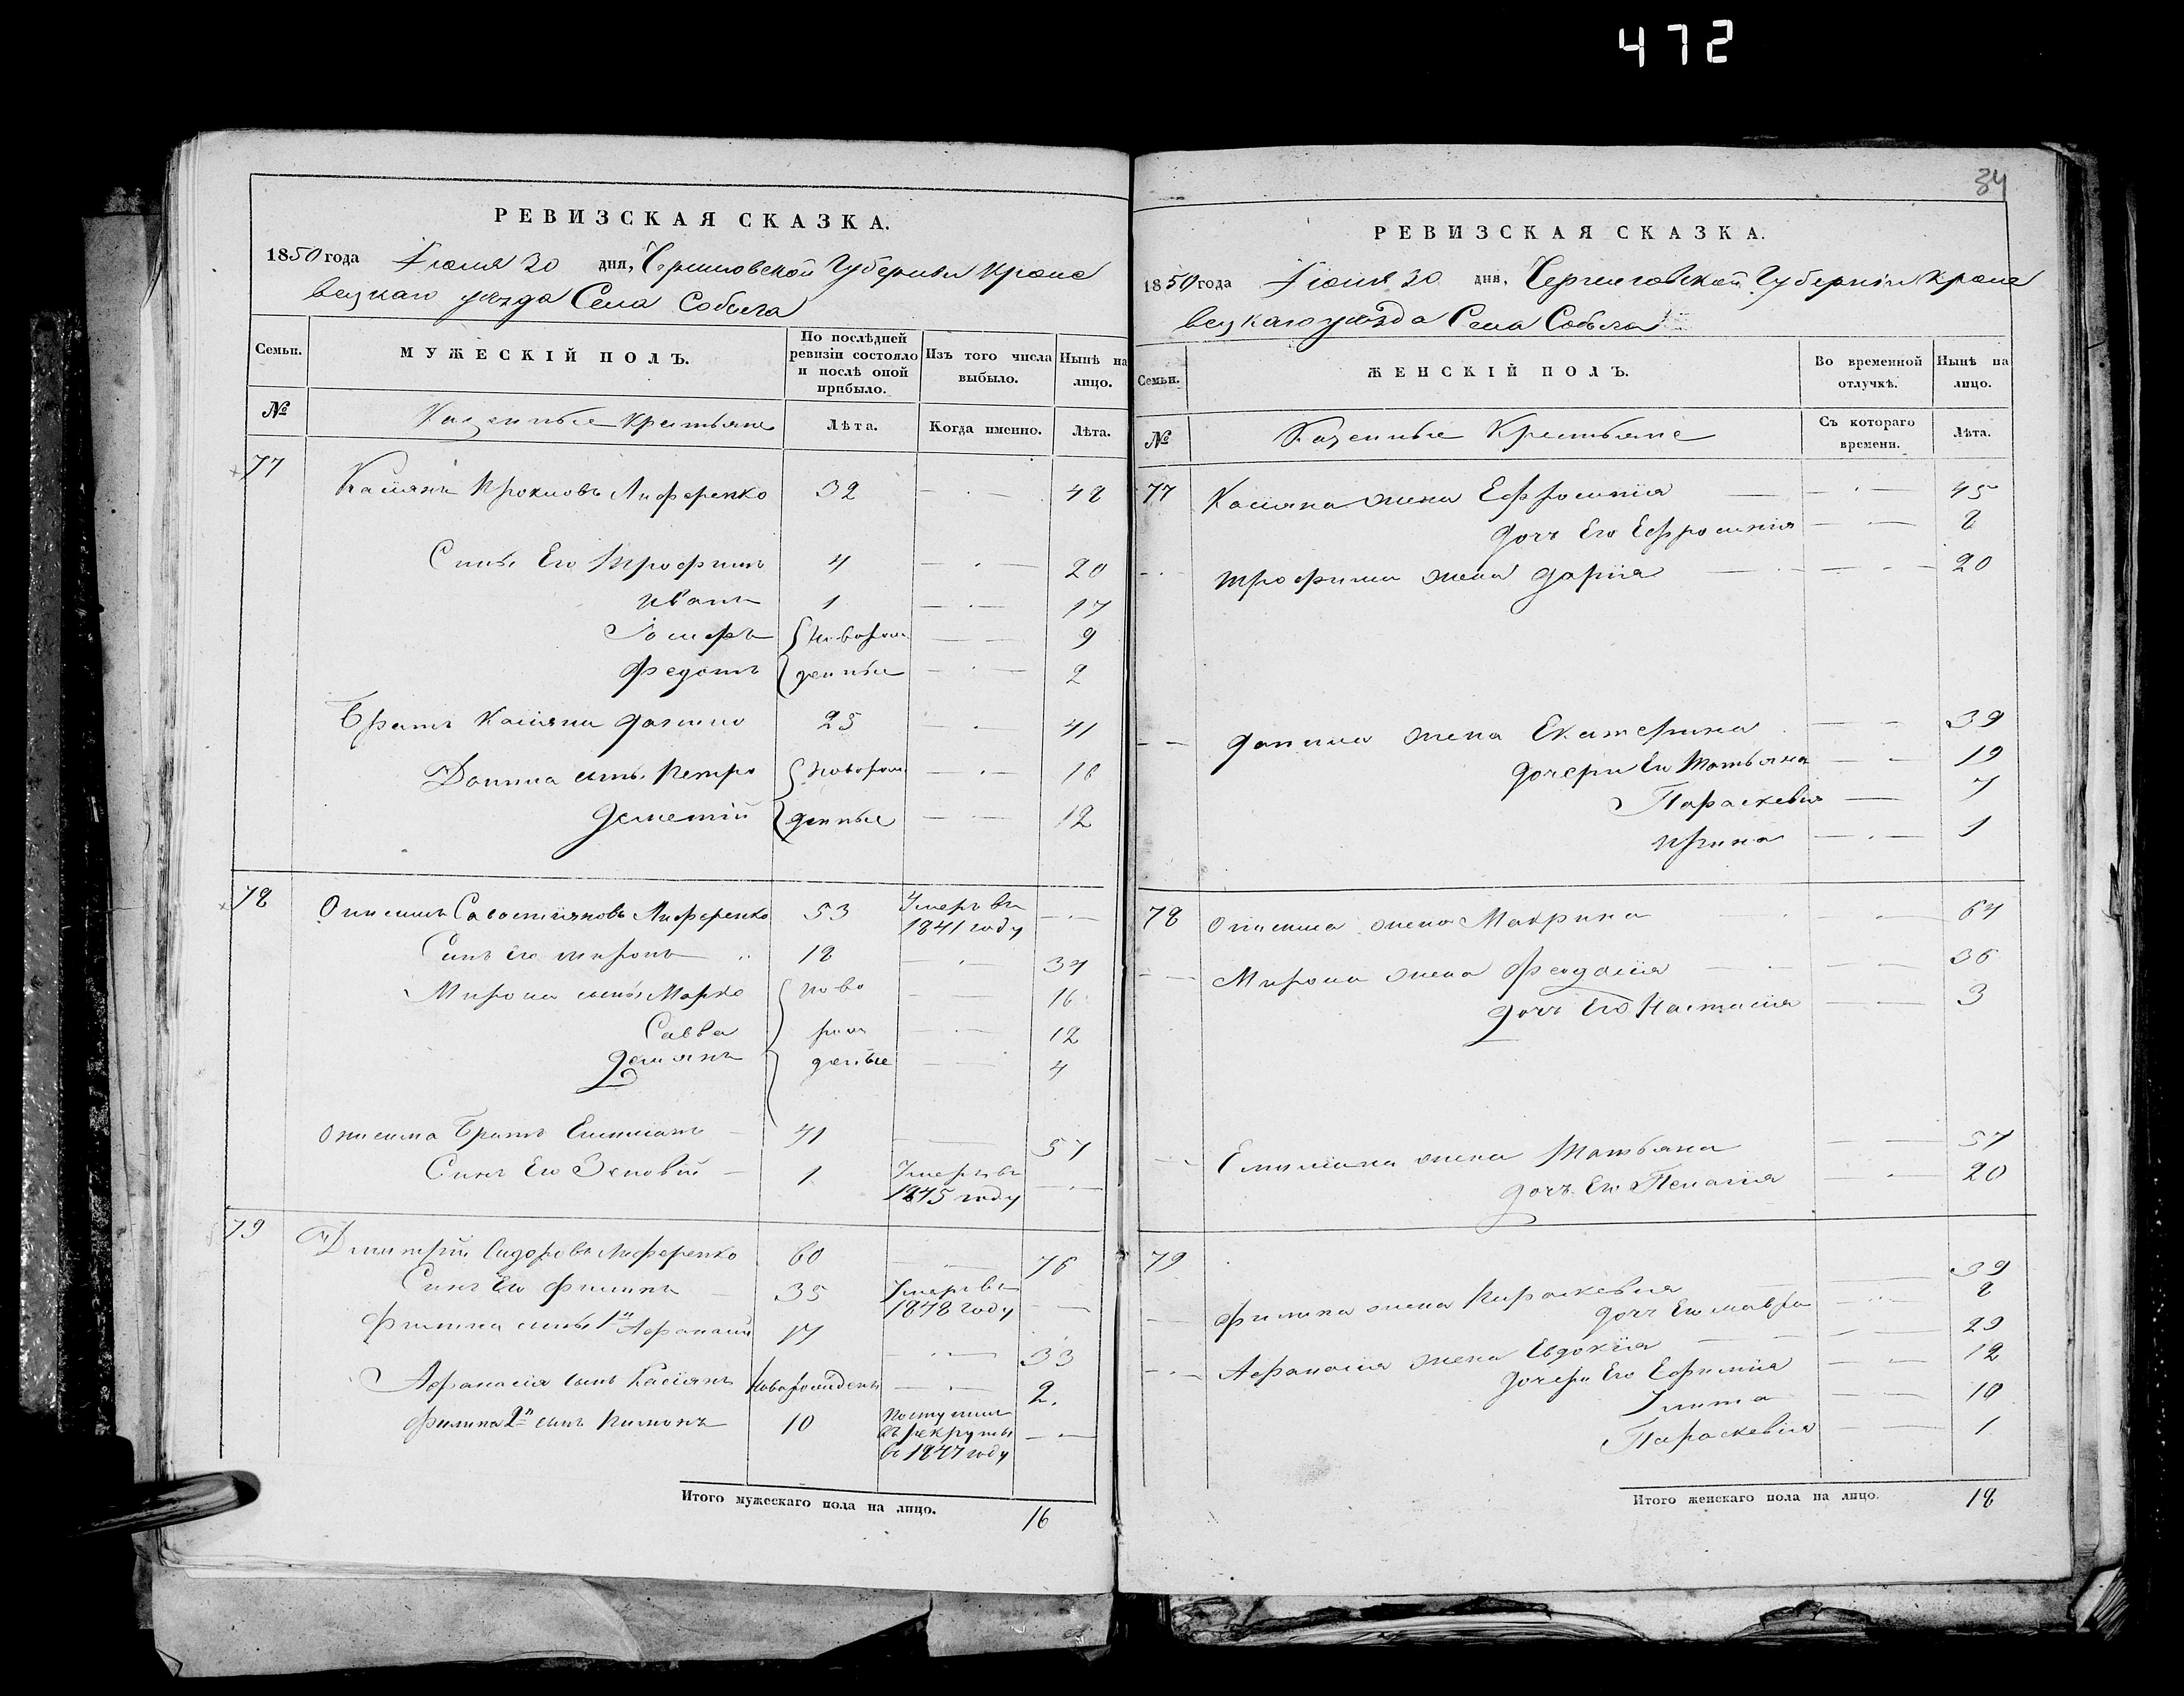 472
РЕВИЗСКАЯ СКАЗКА.
1850 года Іюня 30 дня, Черниговской Губерніи Кроле
вецкаго уѣзда Села Собыча
Семьи.
МУЖЕСКІЙ ПОЛЪ.
По послѣдней
ревизіи состояло
и послѣ оной
прибыло.
Изъ того числа
выбыло.
Нынѣ на
лицо.
№
Казенные крестьяне
Лѣта.
Когда именно.
Лѣта.
77 Касіянъ Прокповъ Лиференко 32 48
Сины Его Трофимъ 4 20
Иванъ 1 17
Іосифъ новорож 9
Федотъ денные 2
Братъ Касіяна Данило 25 41
Данила сынъ Петро новорож 16
Деметій денные 12
78 Онисимъ Савостіяновъ Лиференко 53 Умеръ въ
1841 году
Синъ его Миронъ 18 34
Мирона сыны Марко ново 16
Савва рож 12
Демянъ денные 4
Онисима Братъ Емиліанъ 41 57
Синъ Его Зеновій 1 Умеръ въ
1845 году
79 Дмитрій Сидоровъ Лиференко 60 76
Синъ Его Филипъ 35 Умеръ въ
1848 году
Филипа сыны 1й Афанасій 17 33
Афанасія сынъ Касіянъ Новорожденъ 2.
Филипа 2й сынъ Пимонъ 10 Поступилъ
въ рекруты
въ 1847 году
Итого мужескаго пола на лицо. 16
34
РЕВИЗСКАЯ СКАЗКА.
1850 года Іюня 30 дня, Черниговской Губерніи Кроле
вецкаго уѣзда Села Собыча
Семьи.
ЖЕНСКІЙ ПОЛЪ.
Во временной
отлучкѣ.
Нынѣ на
лицо.
№
Казенные Крестьяне
Съ котораго
времени.
Лѣта.
77 Касіяна жена Ефросинія 45
дочь Его Ефросинія 8
Трофима жена Дарія 20
Данила жена Екатерина 39
дочери Ек Татьяна 19
Параскевія 7
Ирина 1
78 Онисима жена Маврина 64
Мирона жена Феодосія 36
дочь Его Настасія 3
Емиліана жена Татьяна 57
дочь Его Пелагія 20
79
Филипа жена Параскевія 39
дочь Его Мавра 8
Афанасія жена Евдокія 29
дочери Его Ефимія 12
Улита 10
Параскевія 1
Итого женскаго пола на лицо. 18